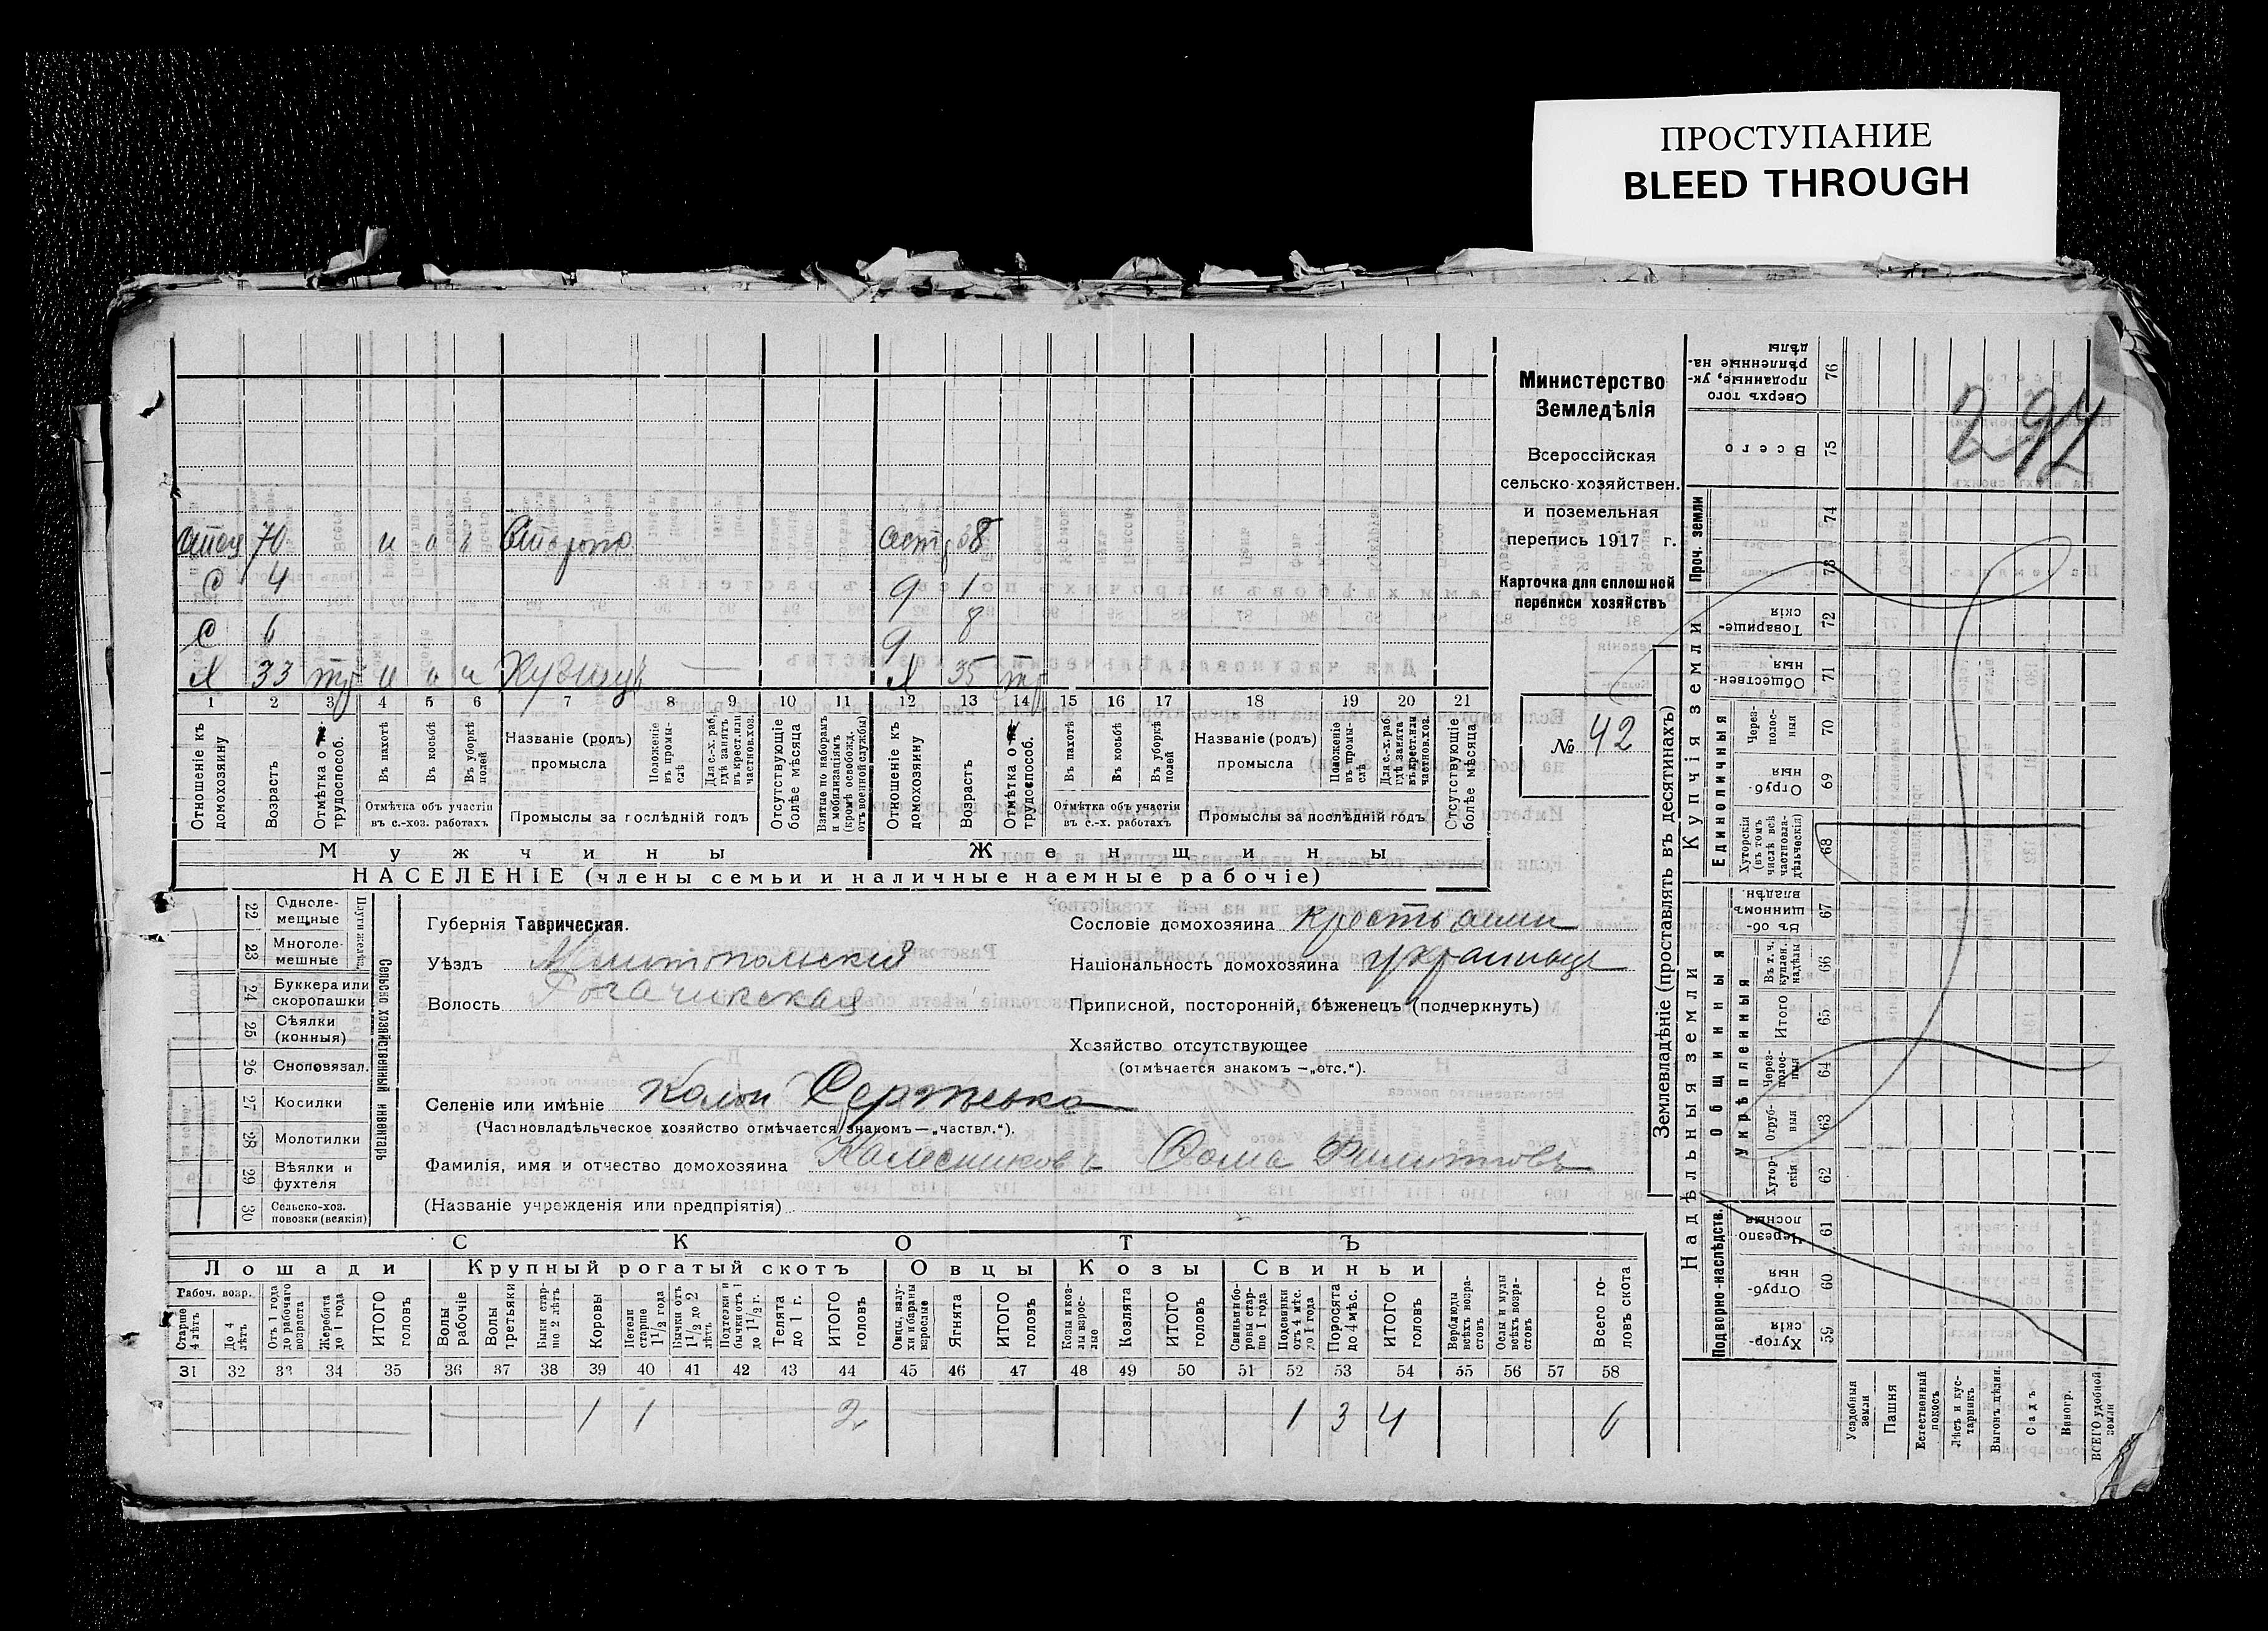 ПРОСТУПАНИЕ
BLEED THROUGH
294
Министерство
Земледѣлія
Всероссійская
сельско-хозяйствен.
и поземельная
перепись 1917 г.
Карточка для сплошной
переписи хозяйствъ
№ 42
отец 70 и а и 68
с 4 д 1
с 6 д 8
Я 33 тр и а и Я 35 тр
1 2 3 4 5 6 7 8 9 10 11 12 13 14 15 16 17 18 19 20 21
Отношеніе къ домохозяину
Возрастъ
Отмѣтка о не-трудоспособ.
Въ пахотѣ
Въ косьбѣ
Въ уборкѣ полей
Отмѣтка объ участіи въ с.-хоз. работахъ
Названіе (родъ) промысла
Положеніе въ промы-слѣ
Для с.-х. раб. гдѣ занятъ въ крест. или частнов. хоз.
Промыслы за послѣдній годъ
Отсутствующіе болѣе мѣсяца
Взятые по наборамъ и мобилизаціямъ (кромѣ освобожд. отъ военной службы)
Отношеніе къ домохозяину
Возрастъ
Отмѣтка о не-трудоспособ.
Въ пахотѣ
Въ косьбѣ
Въ уборкѣ полей
Отмѣтка объ участіи въ с.-х. работахъ
Названіе (родъ) промысла
Положеніе въ промы-слѣ
Для с.-х. раб. гдѣ занята въ крест. или частнов. хоз.
Промыслы за послѣдній годъ
Отсутствующіе болѣе мѣсяца
Мужчины Женщины
НАСЕЛЕНІЕ (члены семьи и наличные наемные рабочіе)
22 Одноле-мещные
23 Многоле-мешные
Плуги желѣз.
24 Буккера или скоропашки
25 Сѣялки (конныя)
26 Сноповязал.
27 Косилки
28 Молотилки
29 Вѣялки и фухтеля
30 Сельско-хоз. повозки (всякія)
Сельско хозяйственный инвентарь
Губернія Таврическая.
Уѣздъ Мелитопольский
Волость Рогачикская
Сословіе домохозяина крестьянин
Національность домохозяина украинец
Приписной, посторонній, бѣженецъ (подчеркнуть)
Хозяйство отсутствующее
(отмѣчается знакомъ —„отс.“).
Селеніе или имѣніе
(Частновладѣльческое хозяйство отмѣчается знакомъ—„частвл.“).
Фамилія, имя и отчество домохозяина Колесниковъ Фома Филипповъ
(Названіе учрежденія или предпріятія)
СКОТЪ
Лошади Крупный рогатый скотъ Овцы Козы Свиньи
Рабоч. возр.
Старше 4 лѣтъ
До 4 лѣтъ
Отъ 1 года до рабочаго возраста
Жеребята до 1 года
ИТОГО головъ
Волы рабочіе
Волы третьяки
Быки стар-ше 2 лѣтъ
Коровы
Нетели старше 1 1/2 года
Бычки отъ 1 1/2 до 2 лѣтъ
Подтелки и бычки отъ 1 до 1 1/2 г.
Телята до 1 г.
ИТОГО головъ
Овцы, валу-хи и бараны взрослые
Ягнята
ИТОГО головъ
Козы и коз-лы взрос-лые
Козлята
ИТОГО головъ
Свиньи и бо-ровы стар-ше 1 года
Подсвинки отъ 4 мѣс. до 1 года
Поросята до 4 мѣс.
ИТОГО головъ
Верблюды всѣхъ возра-стовъ
Ослы и мулы всѣхъ возра-стовъ
Всего го-ловъ скота
31 32 33 34 35 36 37 38 39 40 41 42 43 44 45 46 47 48 49 50 51 52 53 54 55 56 57 58
1 1 2 1 3 4 6
Землевладѣніе (проставлять въ десятинахъ)
Надѣльныя земли
Купчія земли
Проч. земли
Подворно-наслѣдств.
Общинныя
Укрѣпленныя
Единоличныя
Сверхъ того проданные, ук-рѣпленные на-дѣлы 76
Всего 75
74
73
Товарище-скія 72
Обществен-ныя 71
Через-полос-ныя 70
Отруб-ныя 69
Хуторскія (въ томъ числѣ всѣ частновла-дѣльческія) 68
Въ об-щинномъ владѣн. 67
Въ т. ч. куплен. надѣлы 66
Итого 65
Через-полос-ныя 64
Отруб-ныя 63
Хутор-скія 62
Черезпо-лосныя 61
Отруб-ныя 60
Хутор-скія 59
Усадебныя земли
Пашня
Естественный покосъ
Лѣсъ и кус-тарникъ
Выгонъ цѣлин.
Садъ
Виногр.
ВСЕГО удобной земли